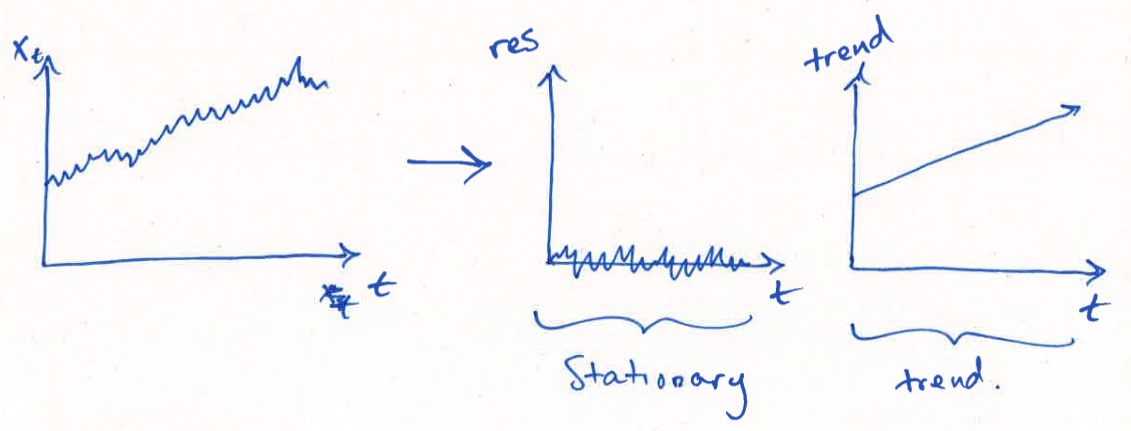 x_t
t
res
t
Stationary
trend
t
trend.